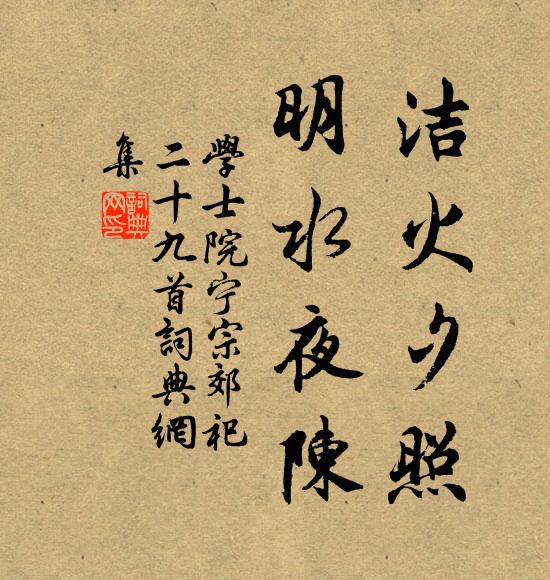 洁火夕照
明水夜陳
學士院宁宗郊祀
二十九首詞典網
集
詞典
网印